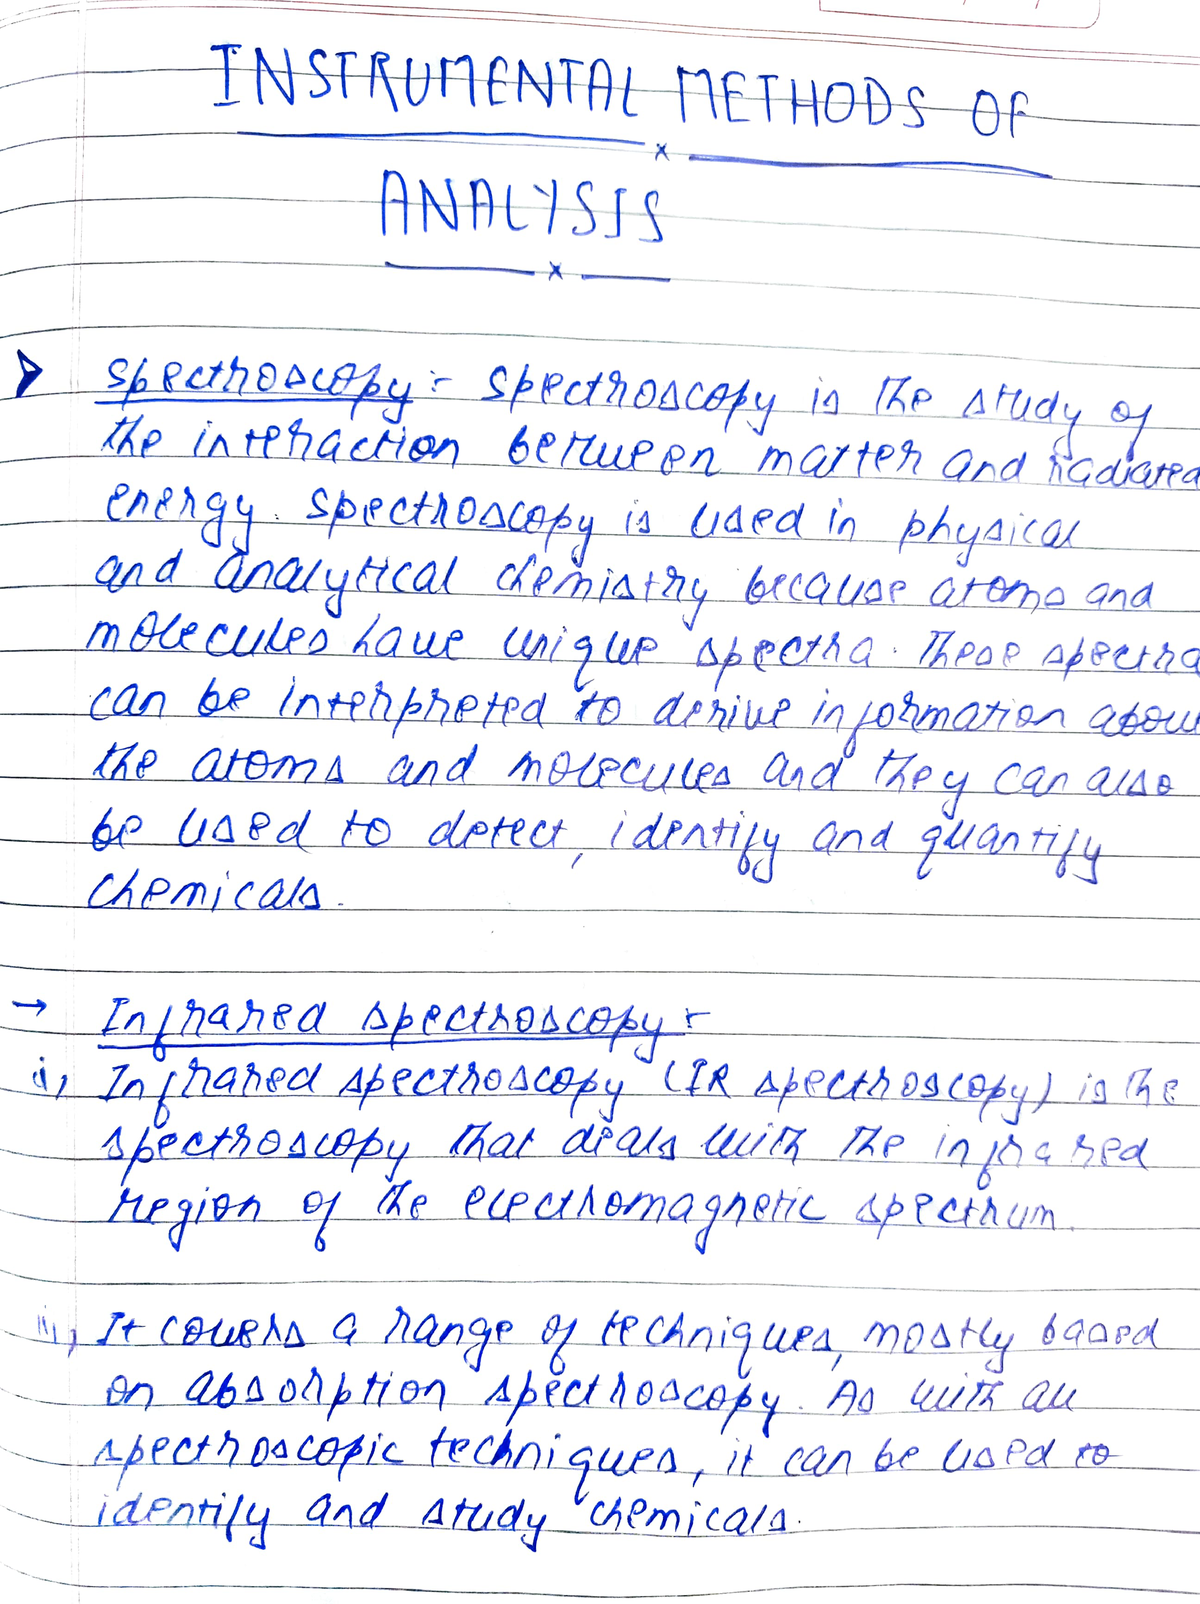 INSTRUMENTAL METHODS OF
ANALYSIS
Spectroscopy :- Spectroscopy is the study of
the interaction between matter and radiated
energy. Spectroscopy is used in physical
and analytical chemistry because atoms and
molecules have unique spectra. These spectra
can be interpreted to derive information abou
the atoms and molecules and they can also
be used to detect, identify and quantify
chemicals.
→ Infrared spectroscopy :-
i, Infrared spectroscopy (IR spectroscopy) is the
spectroscopy that deals with the infrared
region of the electromagnetic spectrum.
ii, It covers a range of techniques, mostly based
on absorption spectroscopy. As with all
spectroscopic techniques, it can be used to
identify and study chemicals.